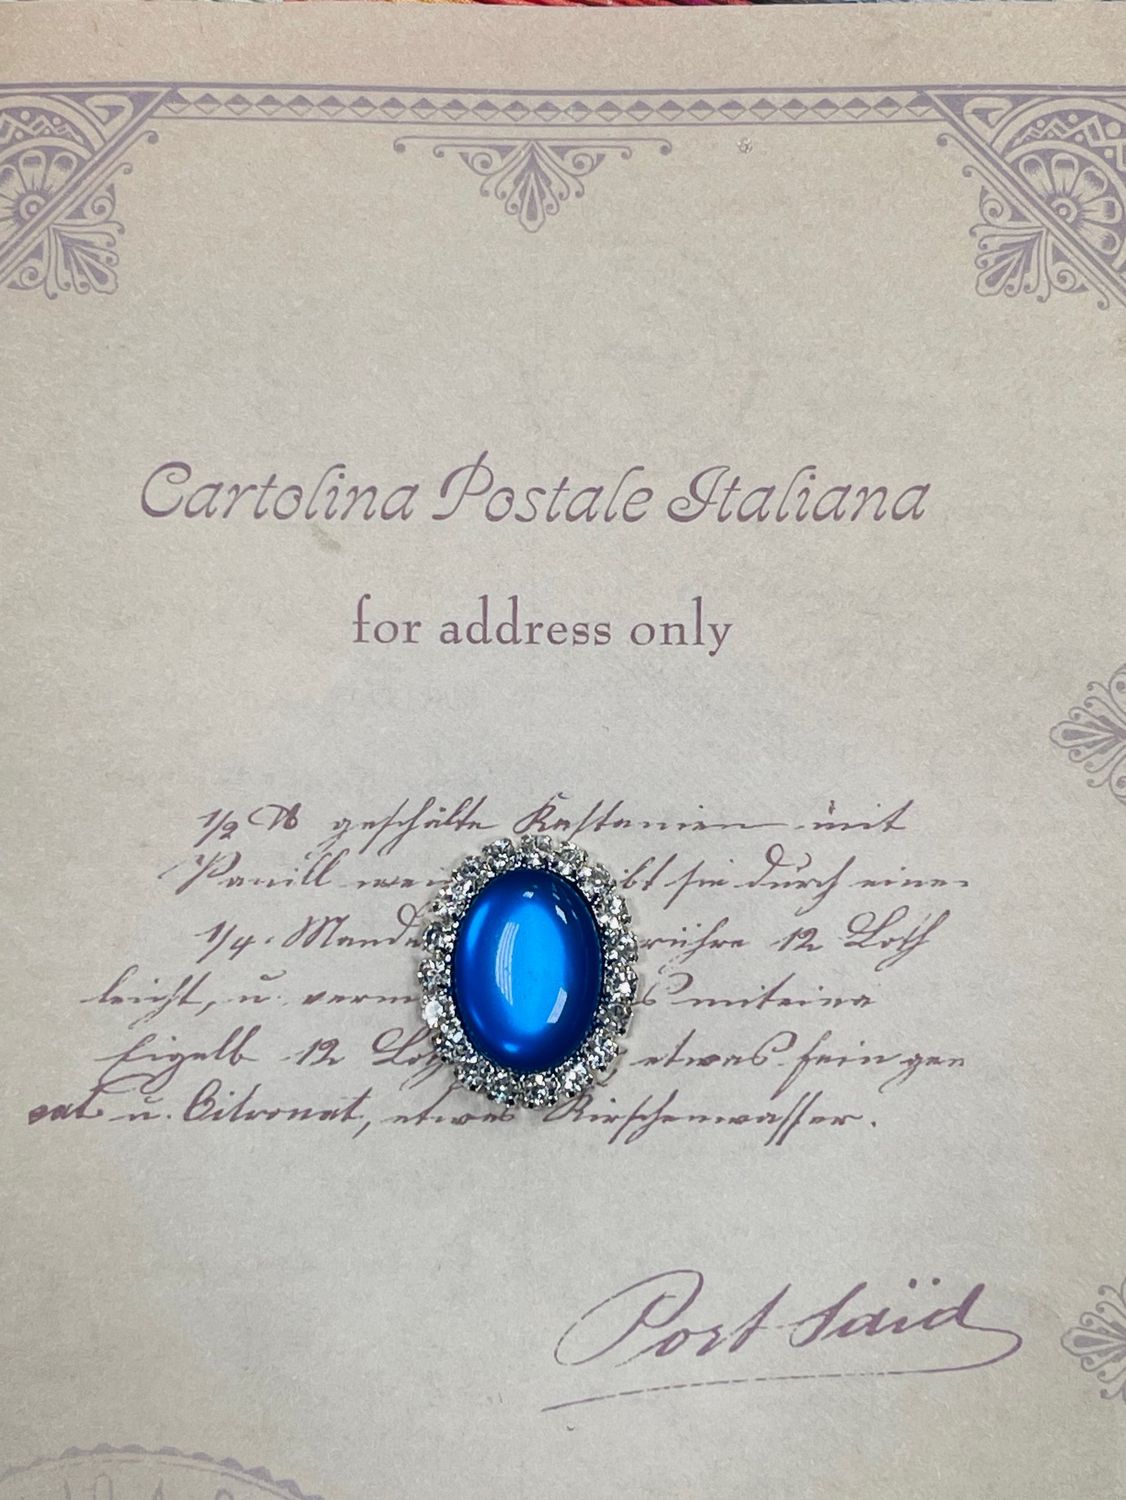 Cartolina Postale Italiana
for address only
1/2 ℔ geschälte Kastanien mit
Vanill sie durch eine
1/4. rühre 12 Loth
leicht, u. miteina
Eigelb 12 etwas fein gen
eat u. Citronat, etwas Kirschenwasser.
Port Saïd